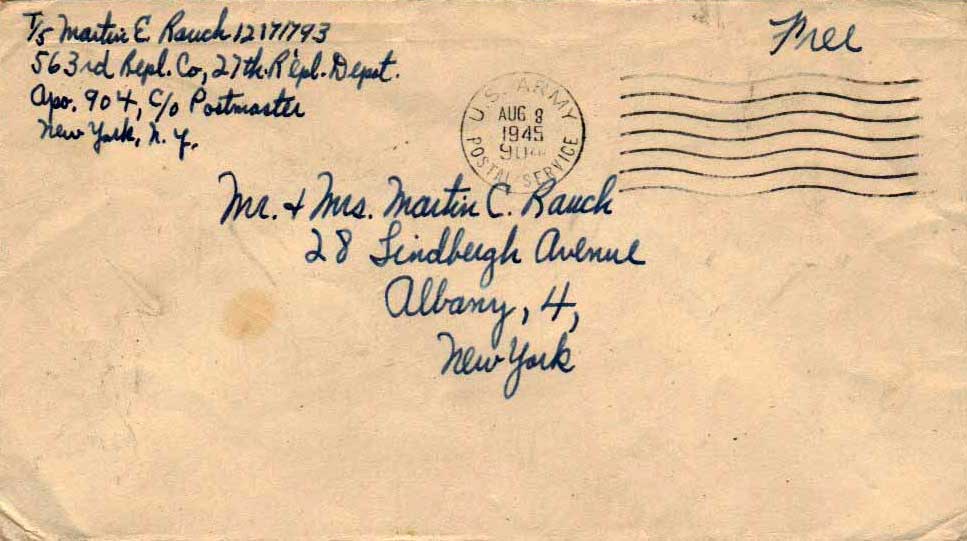 T/5 Martin E. Rauch 12171793
563rd Repl. Co, 27th. Repl. Depot.
Apo. 904, C/o Postmaster
New York, N. Y.
Free
U.S. ARMY
AUG 8
1945
904
POSTAL SERVICE
Mr. + Mrs. Martin C. Rauch
28 Lindbergh Avenue
Albany, 4,
New York